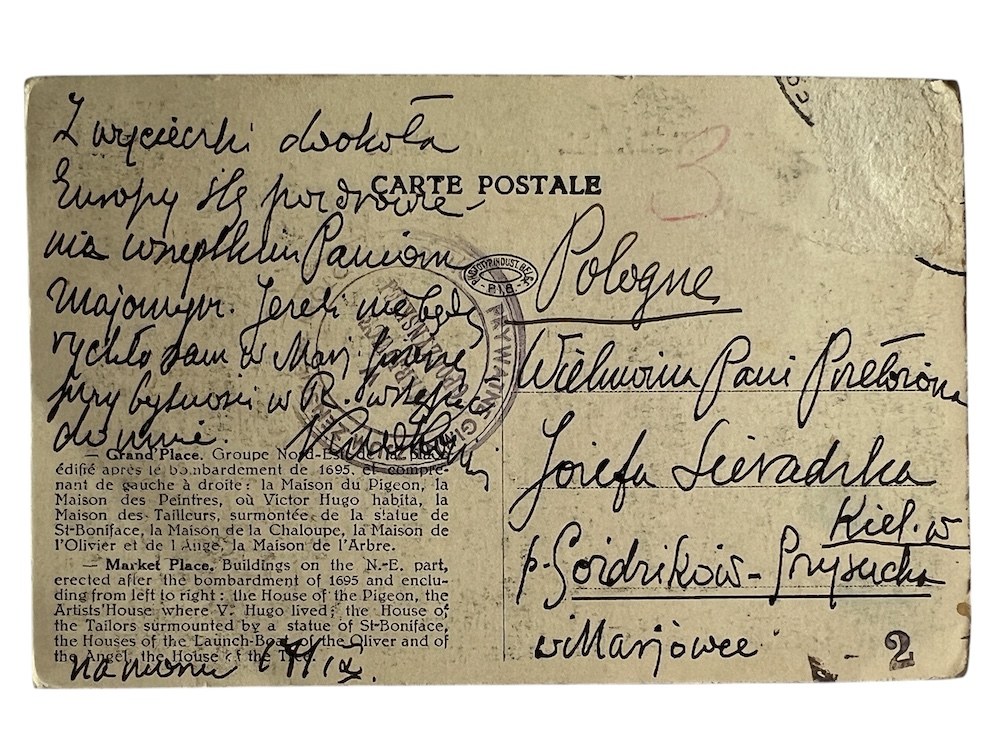 Z wycieczki dookoła
Europy ślę pozdrowie-
nia wszystkim Paniom
Jeżeli nie będę
rychło sam w Marj.
przy bytności w R.
do mnie.
CARTE POSTALE
3
PHOTOTYP. INDUST. BELGE
- P.I.B. -
Pologne
Wielmożna Pani
Józefa Sieradzka
Kiel. w
p. Goździków - Przysucha
w Marjówce
2
— Grand'Place. Groupe Nord-Est de la place
édifié après le bombardement de 1695, et compre-
nant de gauche à droite : la Maison du Pigeon, la
Maison des Peintres, où Victor Hugo habita, la
Maison des Tailleurs, surmontée de la statue de
St-Boniface, la Maison de la Chaloupe, la Maison de
l'Olivier et de l'Ange, la Maison de l'Arbre.
— Market Place. Buildings on the N.-E. part,
erected after the bombardment of 1695 and enclu-
ding from left to right : the House of the Pigeon, the
Artists'House where V. Hugo lived; the House of
the Tailors surmounted by a statue of St-Boniface,
the Houses of the Launch-Boat of the Oliver and of
the Angel, the House of the Tree.
na morzu